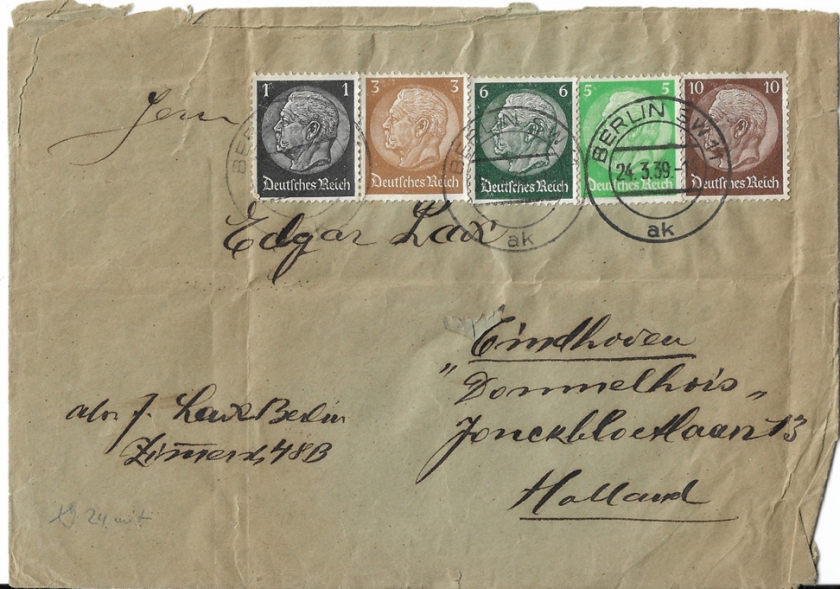 1 1
Deutsches Reich
3 3
Deutsches Reich
6 6
Deutsches Reich
5 5
Deutsches Reich
10 10
Deutsches Reich
BERLIN SW
ak
BERLIN SW 11
24.3.39.-
ak
Edgar Lax
Eindhoven
„Dommelhuis„
Jonckbloetlaan 13
Holland
J. Lax Berlin
48B
24 mit